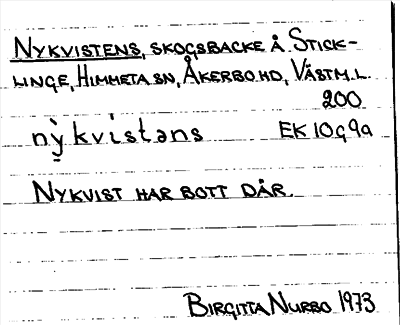 NYKVISTENS, SKOGSBACKE Å STICK-
LINGE, HIMMETA SN, ÅKERBO HD, VÄSTM.L.
200
nỳ̱kvìstəns EK 10G9a
NYKVIST HAR BOTT DÄR.
BIRGITTA NURBO 1973